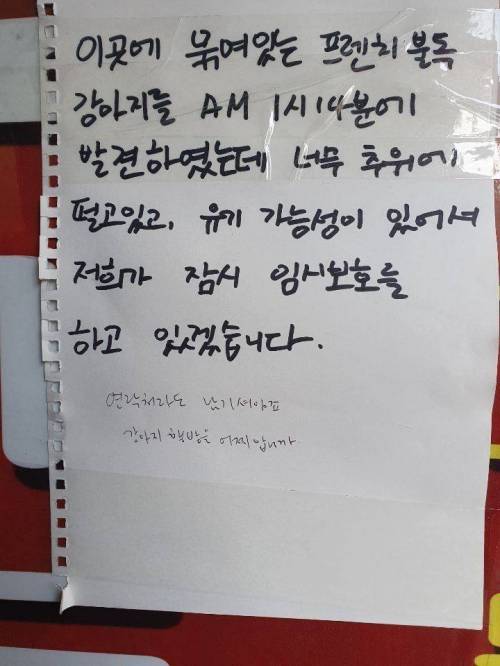 이곳에 묶여있는 프렌치 불독
강아지를 AM 1시14분에
발견하였는데 너무 추위에
떨고있고, 유기 가능성이 있어서
저희가 잠시 임시보호를
하고 있겠습니다.
연락처라도 남기셔야죠
강아지 행방을 어찌압니까